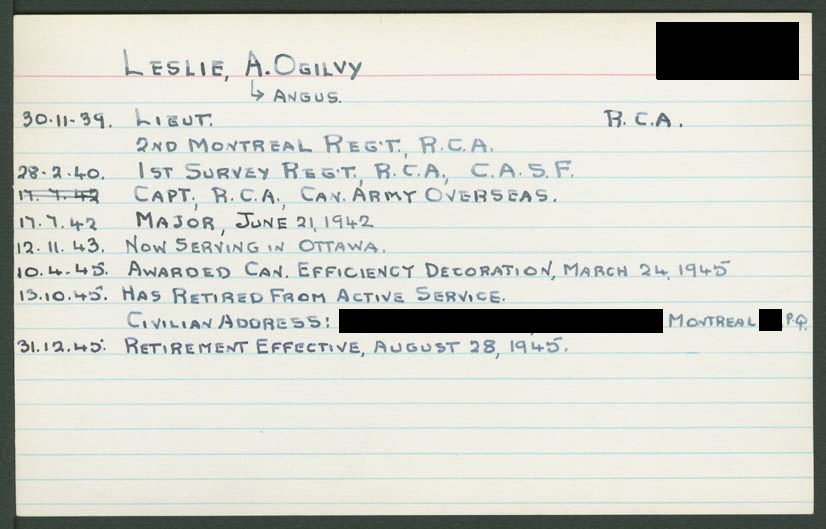 LESLIE, A. OGILVY
↳ ANGUS.
30-11-39. LIEUT. R.C.A.
2ND MONTREAL REG'T., R.C.A.
28-2-40. 1ST SURVEY REG'T., R.C.A., C.A.S.F.
17.7.42 CAPT., R.C.A., CAN. ARMY OVERSEAS.
17.7.42 MAJOR, JUNE 21, 1942
12.11.43. NOW SERVING IN OTTAWA.
10.4.45. AWARDED CAN. EFFICIENCY DECORATION, MARCH 24, 1945
13.10.45. HAS RETIRED FROM ACTIVE SERVICE.
CIVILIAN ADDRESS: MONTREAL P.Q.
31.12.45. RETIREMENT EFFECTIVE, AUGUST 28, 1945.